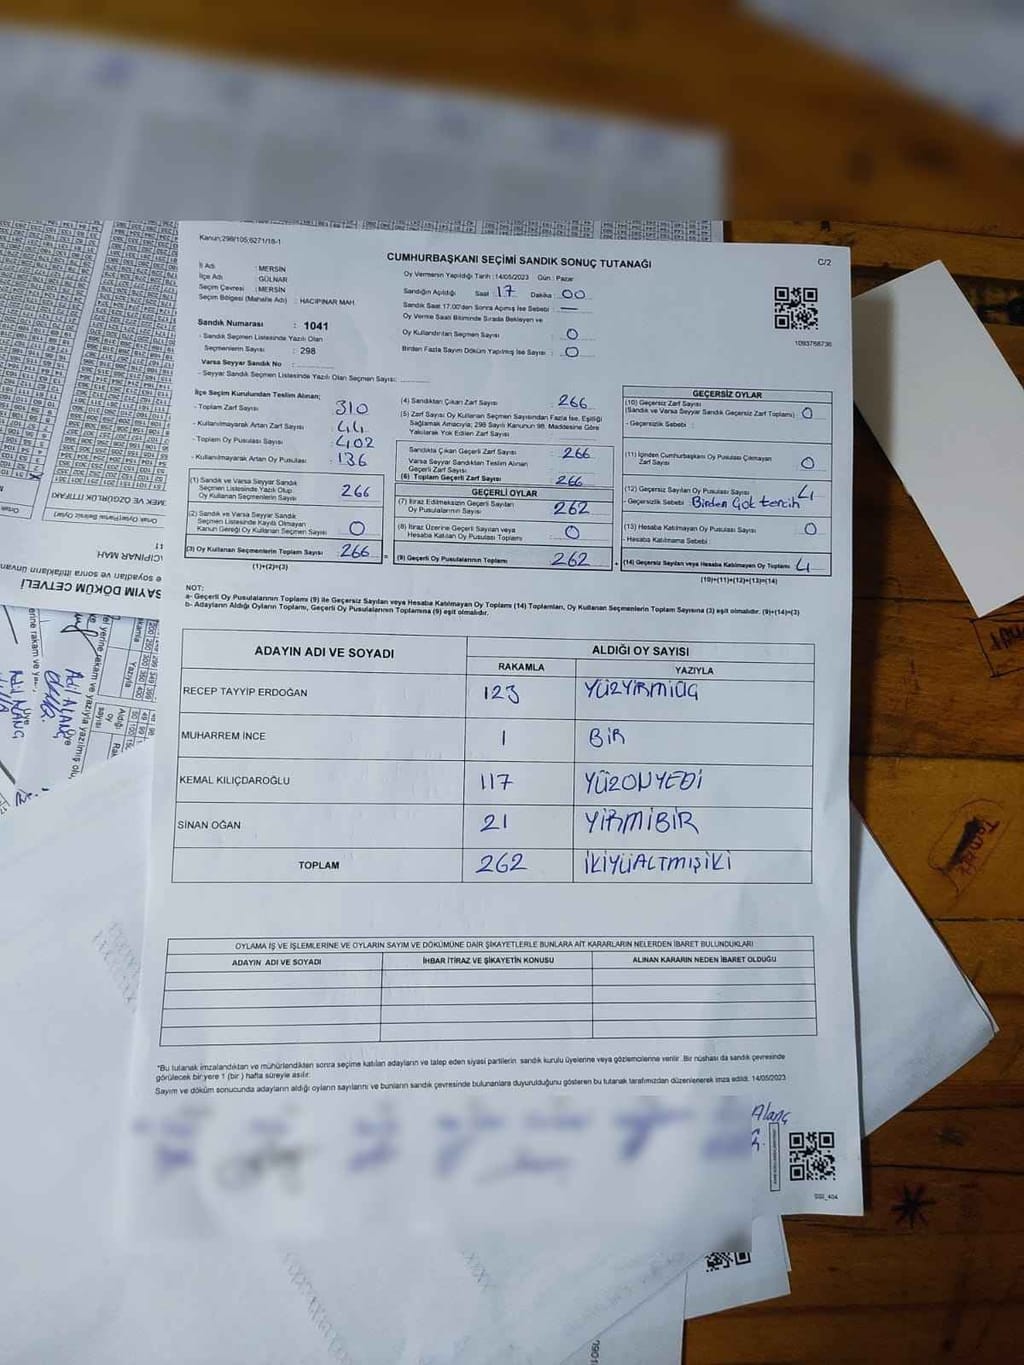 Kanun;298/105;6271/18-1
CUMHURBAŞKANI SEÇİMİ SANDIK SONUÇ TUTANAĞI
C/2
İl Adı : MERSİN
İlçe Adı : GÜLNAR
Seçim Çevresi : MERSİN
Seçim Bölgesi (Mahalle Adı) : HACIPINAR MAH.
Oy Vermenin Yapıldığı Tarih : 14/05/2023 Gün : Pazar
Sandığın Açıldığı Saat : 17 Dakika : 00
Sandık Saat 17.00'den Sonra Açılmış İse Sebebi : —
Oy Verme Saati Bitiminde Sırada Bekleyen ve
Oy Kullandırılan Seçmen Sayısı : 0
Birden Fazla Sayım Döküm Yapılmış İse Sayısı : 0
1093768736
Sandık Numarası : 1041
- Sandık Seçmen Listesinde Yazılı Olan
Seçmenlerin Sayısı : 298
Varsa Seyyar Sandık No :
- Seyyar Sandık Seçmen Listesinde Yazılı Olan Seçmen Sayısı:
İlçe Seçim Kurulundan Teslim Alınan;
- Toplam Zarf Sayısı : 310
- Kullanılmayarak Artan Zarf Sayısı : 44
- Toplam Oy Pusulası Sayısı : 402
- Kullanılmayarak Artan Oy Pusulası : 136
(1) Sandık ve Varsa Seyyar Sandık
Seçmen Listesinde Yazılı Olup
Oy Kullanan Seçmenlerin Sayısı 266
(2) Sandık ve Varsa Seyyar Sandık
Seçmen Listesinde Kayıtlı Olmayan
Kanun Gereği Oy Kullanan Seçmen Sayısı 0
(3) Oy Kullanan Seçmenlerin Toplam Sayısı 266 =
(1)+(2)=(3)
(4) Sandıktan Çıkan Zarf Sayısı : 266
(5) Zarf Sayısı Oy Kullanan Seçmen Sayısından Fazla İse, Eşitliği
Sağlamak Amacıyla; 298 Sayılı Kanunun 98. Maddesine Göre
Yakılarak Yok Edilen Zarf Sayısı :
Sandıkta Çıkan Geçerli Zarf Sayısı : 266
Varsa Seyyar Sandıktan Teslim Alınan
Geçerli Zarf Sayısı :
(6) Toplam Geçerli Zarf Sayısı : 266
GEÇERLİ OYLAR
(7) İtiraz Edilmeksizin Geçerli Sayılan
Oy Pusulalarının Sayısı 262
(8) İtiraz Üzerine Geçerli Sayılan veya
Hesaba Katılan Oy Pusulası Toplamı 0
(9) Geçerli Oy Pusulalarının Toplamı 262 +
GEÇERSİZ OYLAR
(10) Geçersiz Zarf Sayısı
(Sandık ve Varsa Seyyar Sandık Geçersiz Zarf Toplamı) : 0
- Geçersizlik Sebebi :
(11) İçinden Cumhurbaşkanı Oy Pusulası Çıkmayan
Zarf Sayısı : 0
(12) Geçersiz Sayılan Oy Pusulası Sayısı : 4
- Geçersizlik Sebebi : Birden Çok tercih
(13) Hesaba Katılmayan Oy Pusulası Sayısı : 0
- Hesaba Katılmama Sebebi :
(14) Geçersiz Sayılan veya Hesaba Katılmayan Oy Toplamı 4
(10)+(11)+(12)+(13)=(14)
NOT:
a- Geçerli Oy Pusulalarının Toplamı (9) ile Geçersiz Sayılan veya Hesaba Katılmayan Oy Toplamı (14) Toplamları, Oy Kullanan Seçmenlerin Toplam Sayısına (3) eşit olmalıdır. (9)+(14)=(3)
b- Adayların Aldığı Oyların Toplamı, Geçerli Oy Pusulalarının Toplamına (9) eşit olmalıdır.
ADAYIN ADI VE SOYADI ALDIĞI OY SAYISI
RAKAMLA YAZIYLA
RECEP TAYYİP ERDOĞAN 123 YÜZYİRMİÜÇ
MUHARREM İNCE 1 BİR
KEMAL KILIÇDAROĞLU 117 YÜZONYEDİ
SİNAN OĞAN 21 YİRMİBİR
TOPLAM 262 İKİYÜALTMIŞİKİ
OYLAMA İŞ VE İŞLEMLERİNE VE OYLARIN SAYIM VE DÖKÜMÜNE DAİR ŞİKAYETLERLE BUNLARA AİT KARARLARIN NELERDEN İBARET BULUNDUKLARI
ADAYIN ADI VE SOYADI İHBAR İTİRAZ VE ŞİKAYETİN KONUSU ALINAN KARARIN NEDEN İBARET OLDUĞU
*Bu tutanak imzalandıktan ve mühürlendikten sonra seçime katılan adayların ve talep eden siyasi partilerin sandık kurulu üyelerine veya gözlemcilerine verilir. Bir nüshası da sandık çevresinde
görülecek bir yere 1 (bir ) hafta süreyle asılır.
Sayım ve döküm sonucunda adayların aldığı oyların sayılarını ve bunların sandık çevresinde bulunanlara duyurulduğunu gösteren bu tutanak tarafımızdan düzenlenerek imza edildi. 14/05/2023
Alanç
SSI_404
SAYIM DÖKÜM CETVELİ